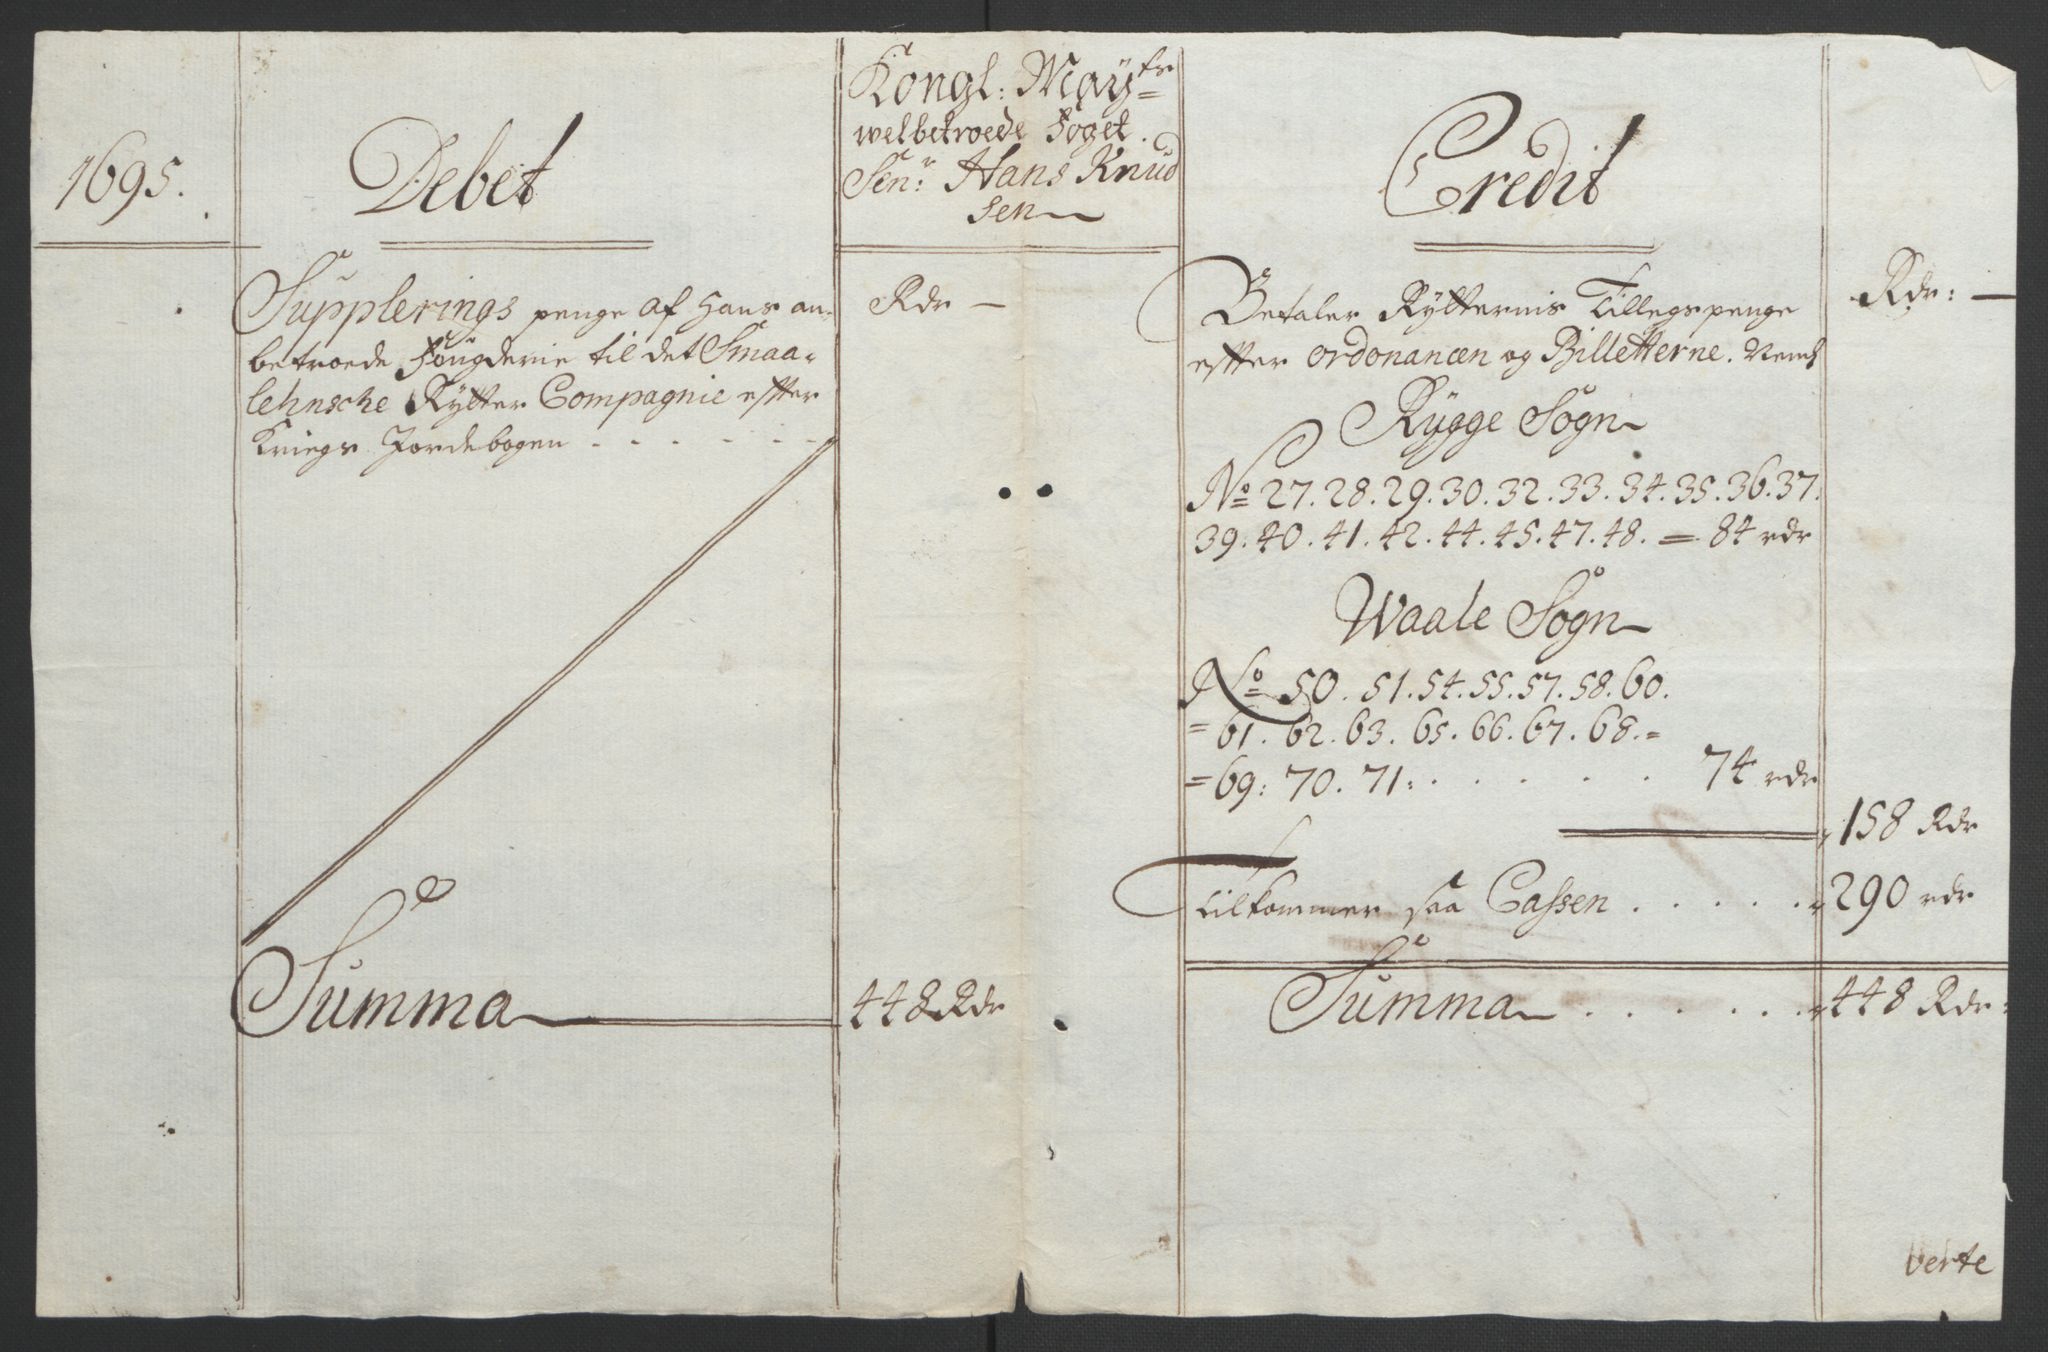 1695.
Debet
Kongl: Mayts
welbetroede Foget.
Senr: Hans Knud
sen
Credit
Supplerings penge af hans an-
betroede Fougderie til det Smaa-
lehnsche Rytter Compagnie efter
Kriegs Jordebogen . . . . . .
Rdr
Summa 448 Rdr
Betaler Rytternis Tillegspenge
efter ordonancen og Billetterne. Neml
Rdr:
Rygge Sogn
No 27. 28. 29. 30. 32. 33. 34. 35. 36. 37.
39. 40. 41. 42. 44. 45. 47. 48. = 84 rdr
Waale Sogn
No 50. 51. 54. 55. 57. 58. 60.
= 61. 62. 63. 65. 66. 67. 68. =
= 69: 70. 71: . . . . . 74 rdr
158 Rdr
tilkommer saa Cassen . . . . . 290 rdr
Summa . . . . . . 448 Rdr:
verte